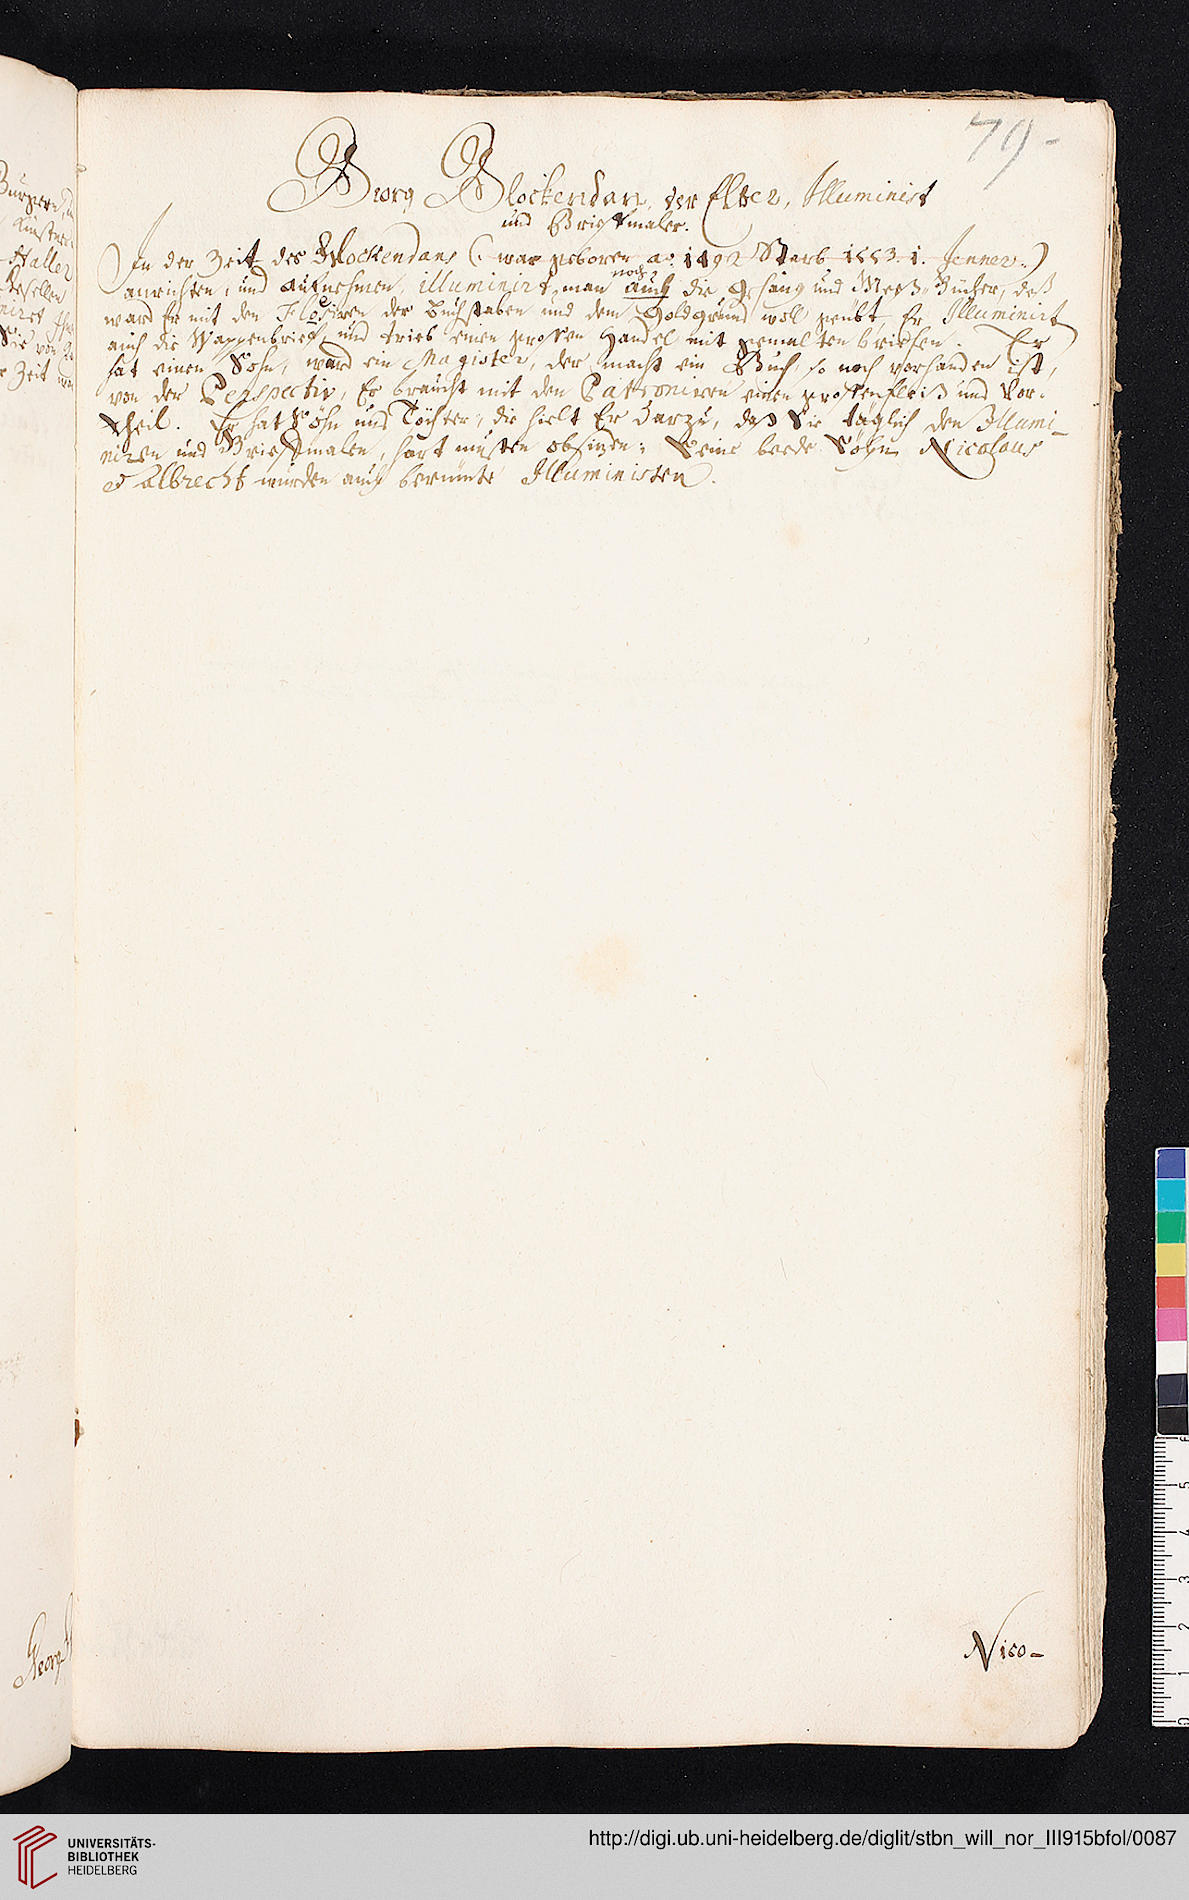 79-
Georg Glockendan, der Elter, Illuminist
und Brieffmaler.
In der Zeit des Glockendans (. war geboren ao. 1492 Starb 1553. 1. Jenner.)
noch
anrichten, und aufnehmen, illuminirt man auch die Gesäng und Meeß-Bücher, deß
ward Er mit den Floriren der Buchstaben und dem Goldgrund woll geübt, Er Illuminirt
auch die Wappenbrieff und trieb einen grossen Handel mit gemalten briefen. Er
hat einen Sohn, ward ein Magister, der macht ein Buch, so noch vorhanden ist,
von der Perspectiv, Er braucht mit den Patroniren einen grossen fleiß und Vor-
theil. Er hat Söhn und Töchter, die hielt Er darzu, daß Sie täglich den Illumi-
niren und Brieffmalen, hart musten obsizen: Seine beede Söhn Nicolaus
et Albrecht wurden auch berümte Illuministen.
Nico-
Burgern
Künstner
Haller
Gesellen
Sie von
Zeit
Georg
6
5
4
3
2
1
0
UNIVERSITÄTS-
BIBLIOTHEK
HEIDELBERG
http://digi.ub.uni-heidelberg.de/diglit/stbn_will_nor_III915bfol/0087